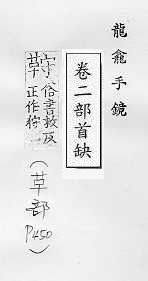 龍龕手鏡
卷二部首缺
俗書救反
正作狩
(草部
P450)